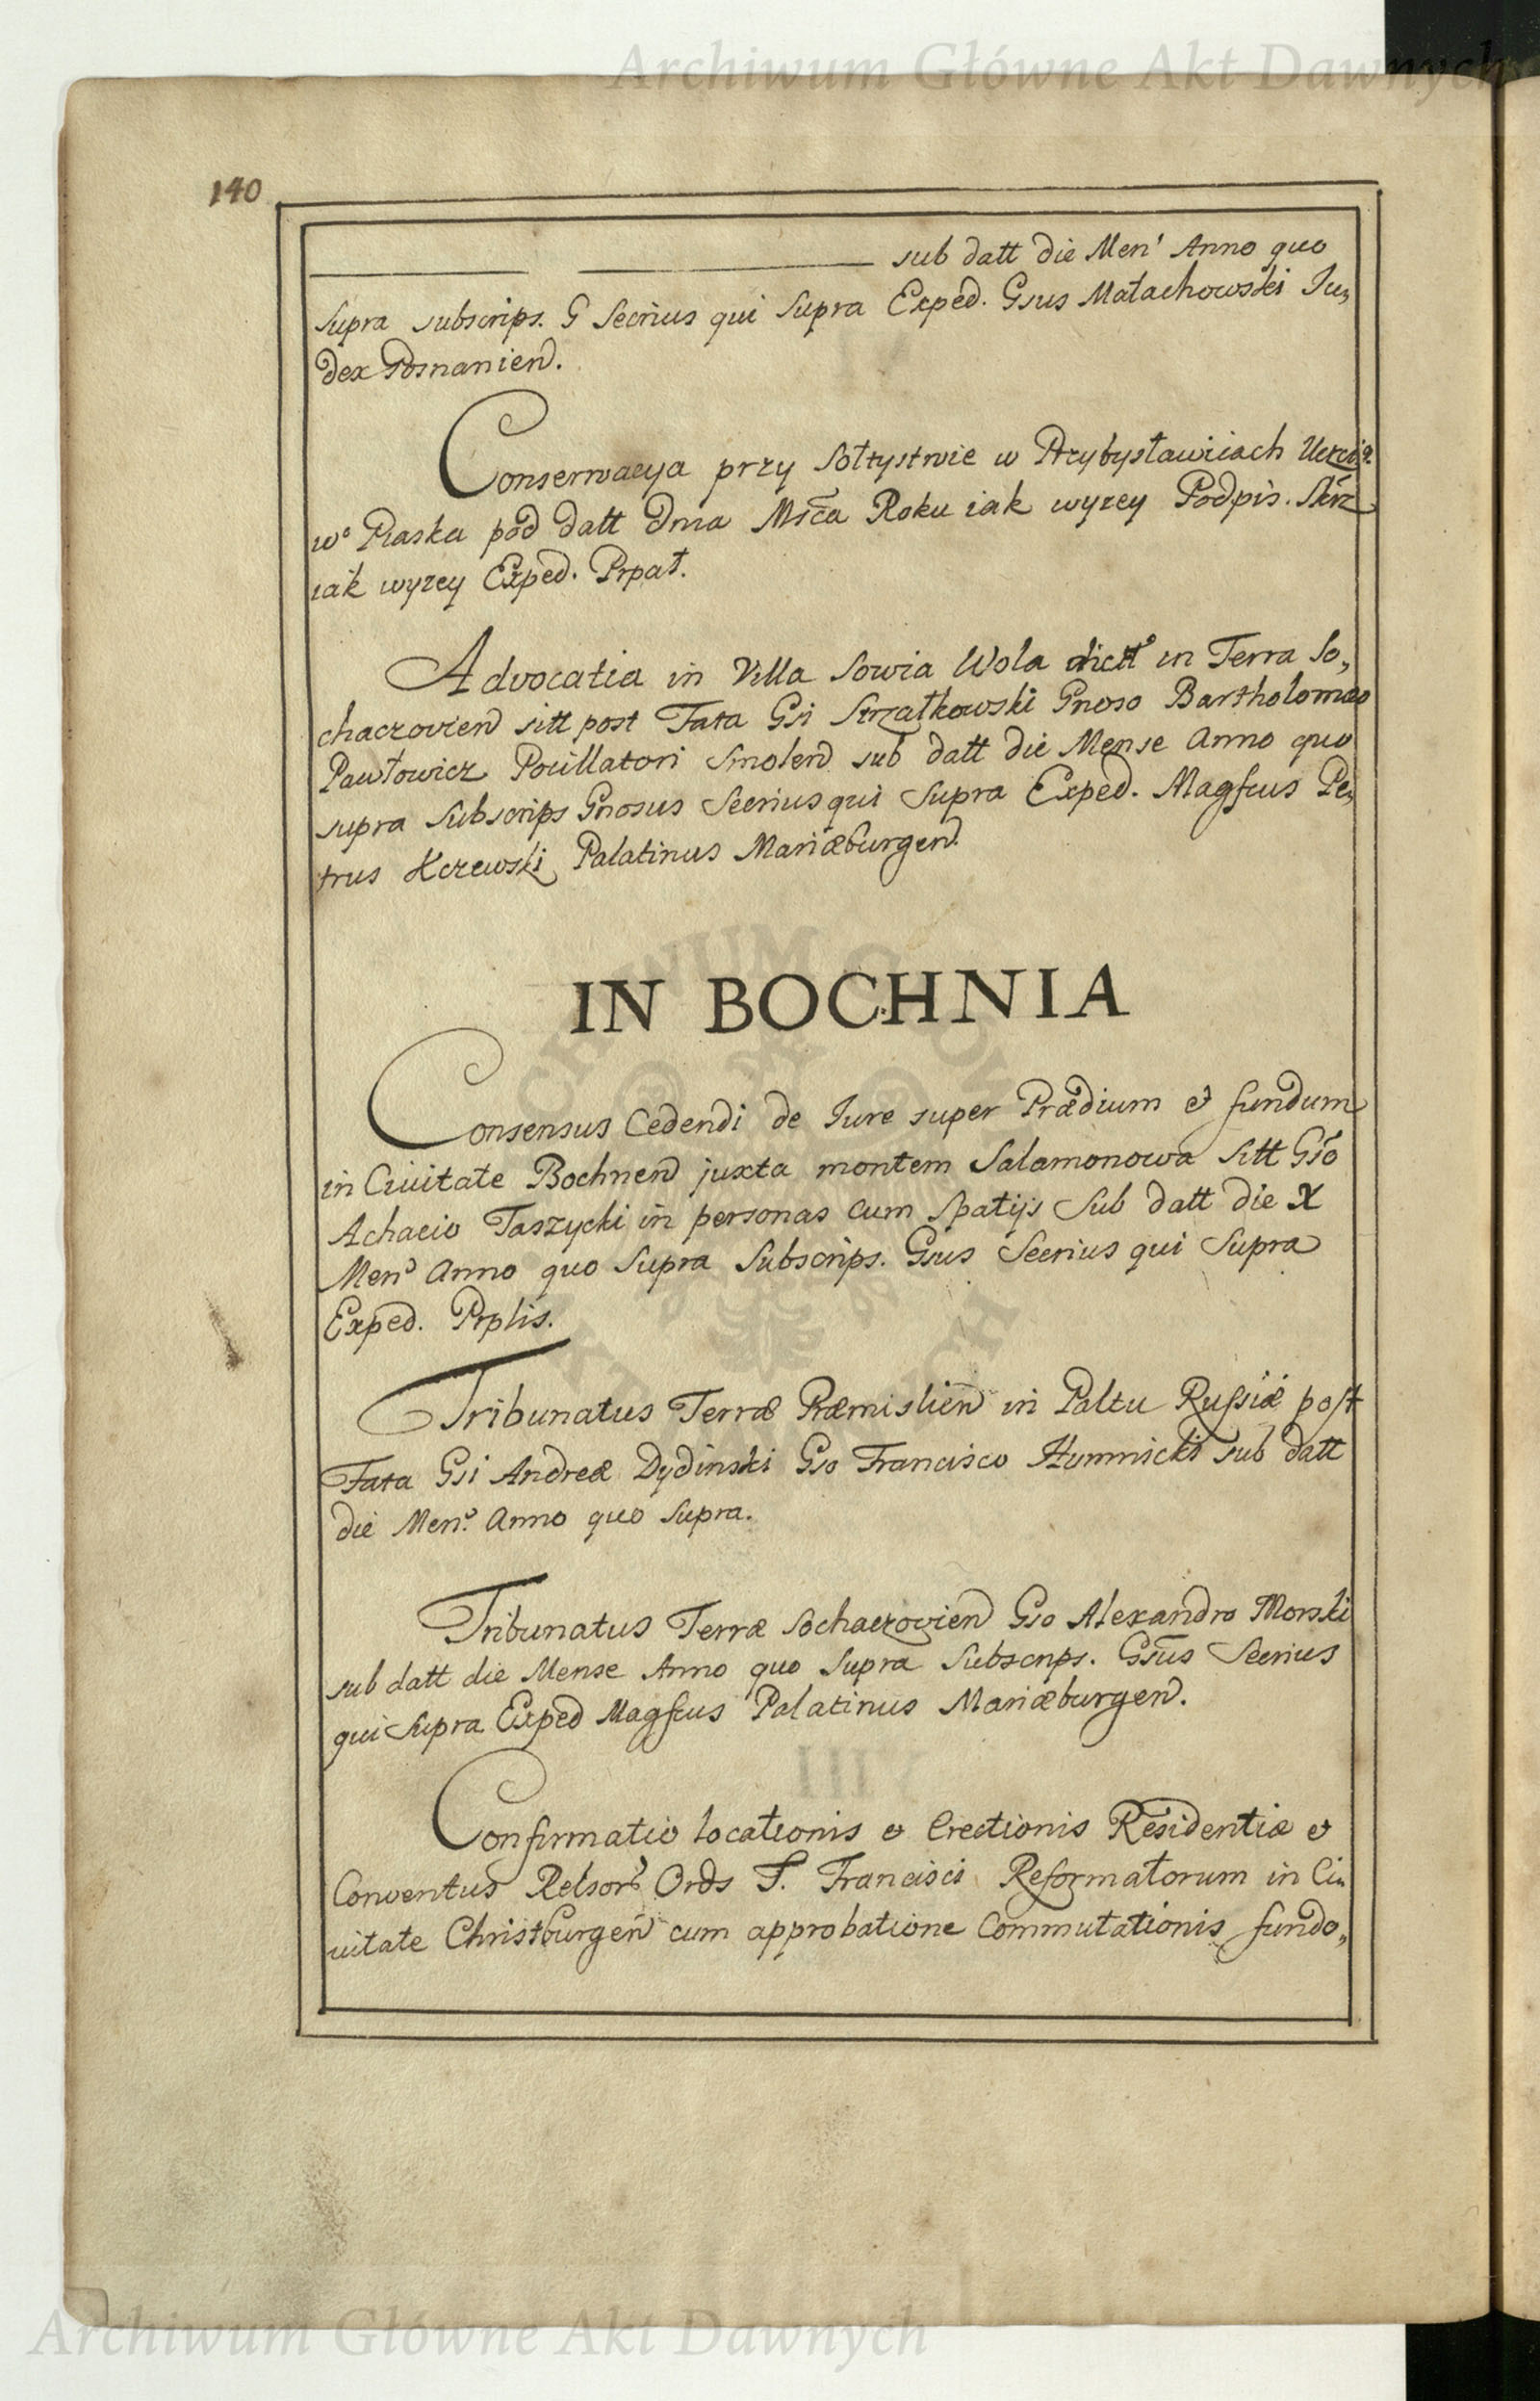 Archiwum Główne Akt Dawnych
140
sub datt die Men' Anno quo
supra subscrips. G Secrius qui supra Exped. Gsus Małachowski Iu,
dex Posnanien.
Conserwacya przy Sołtystwie w Przybysławicach Uczci
w° Piaska pod datt Dnia Msca Roku iak wyzey Podpis. Skrz
iak wyzey Exped. Prpat.
Advocatia in Villa Sowia Wola dict in Terra So,
chaczovien sitt post Fata Gsi Strzałkowski Gnoso Bartholomæo
Pawłowicz Pocillatori Smolen sub datt die Mense Anno quo
supra Subscrips Gnosus Secrius qui supra Exped. Magfcus Pe,
trus Kczewski Palatinus Mariæburgen.
IN BOCHNIA
Consensus Cedendi de Iure super Prædium et fundum
in Civitate Bochnen juxta montem Salamonowa sitt Gso
Achacio Taszycki in personas cum spatijs sub datt die X
Men' Anno quo supra Subscrips. Gsus Secrius qui supra
Exped. Prplis.
Tribunatus Terræ Præmislien in Paltu Russiæ post
Fata Gsi Andreæ Dydinski Gso Francisco Humnicki sub datt
die Men' Anno quo supra.
Tribunatus Terræ Sochaczovien Gso Alexandro Morski
sub datt die Mense Anno quo supra Subscrips. Gsus Secrius
qui supra Exped Magfcus Palatinus Mariæburgen.
Confirmatio locationis et Erectionis Residentiæ et
Conventus Relsor' Ords S. Francisci Reformatorum in Ci,
uitate Christburgen cum approbatione Commutationis fundo,
Archiwum Główne Akt Dawnych